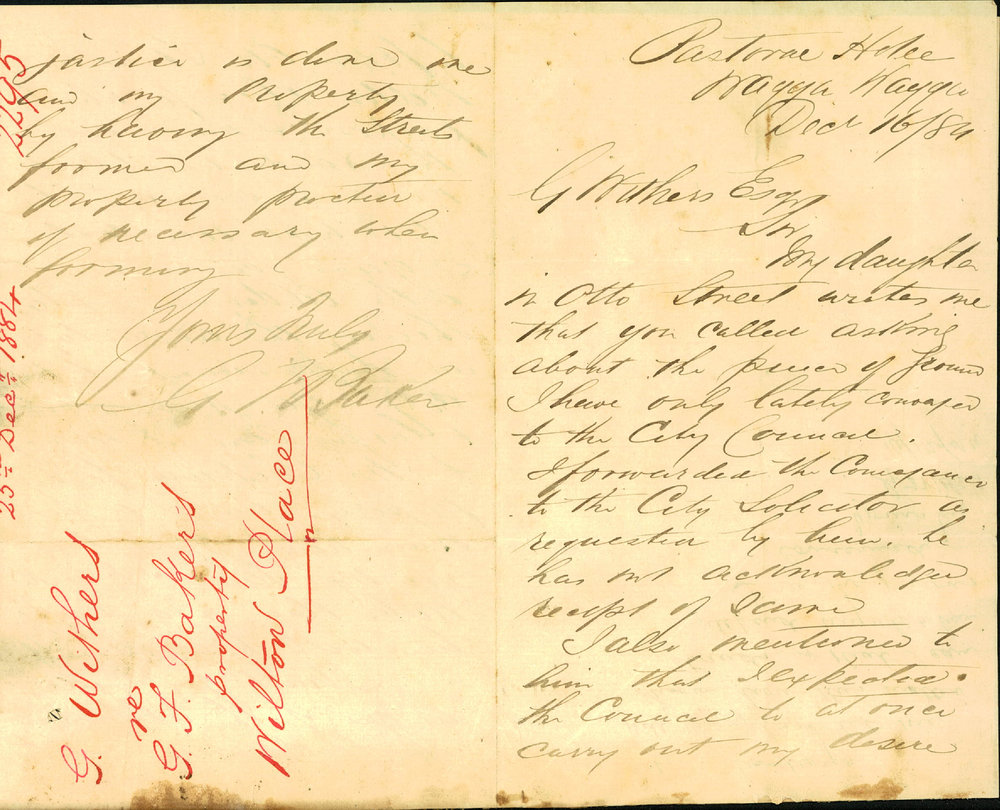 Pastoral Hotel
Wagga Wagga
Decr 16/84
G Withers Esqr
Sir
My daughter
in Otto Street writes me
that you called asking
about the piece of ground
I have only lately conveyed
to the City Council.
I forwarded the Conveyance
to the City Solicitor as
requested by him. he
has not acknowledged
receipt of same
I also mentioned to
him that I expected
the Council to at once
carry out my desire
justice is done me
and my Property
by having the Streets
formed and my
property protected
if necessary when
forming
Yours Truly
G. F. Baker
2295
23rd Decr 1884
G. Withers
re
G. F. Baker's
property
Wilton Place